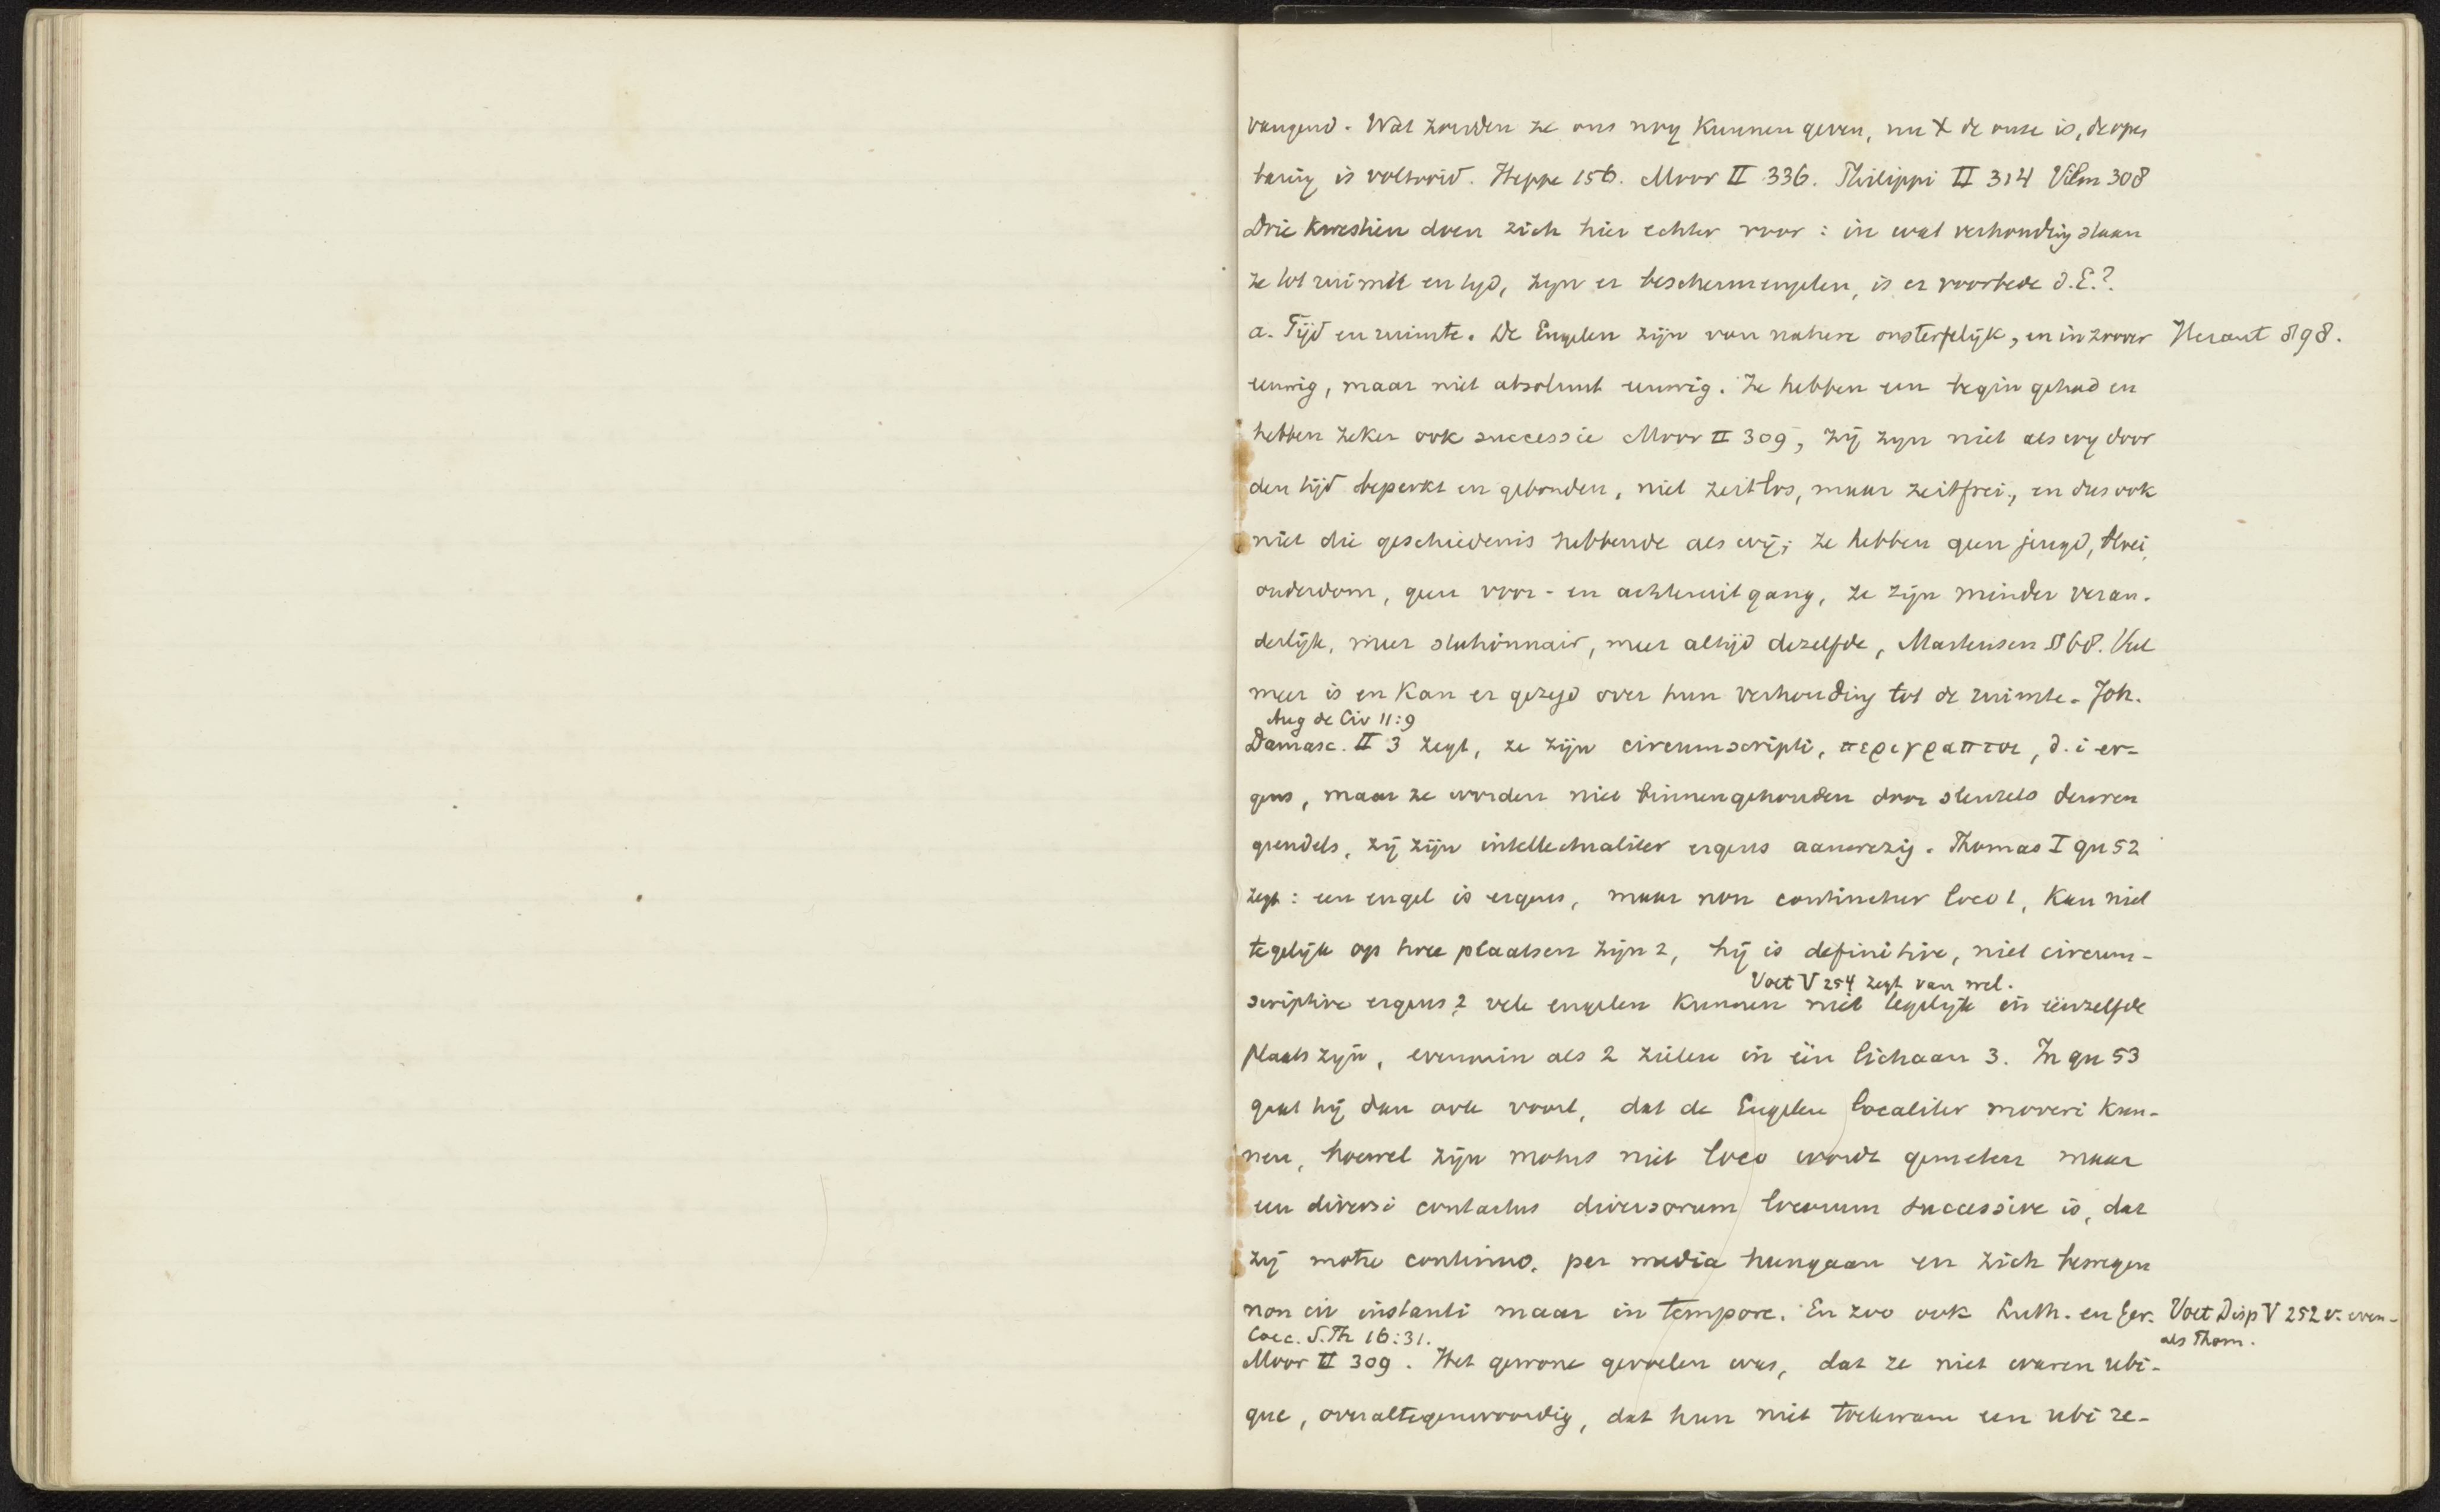 vangend. Wat zouden ze ons nog kunnen geven, nu X de onze is, de open
baring is voltooid. Heppe 156. Moor II 336. Philippi II 314 Vilm 308
Drie kwestien doen zich hier echter voor: in wat verhouding staan
ze tot ruimte en tyd, zyn er beschermengelen, is er voorbede d. E.?.
a. Tijd en ruimte. De Engelen zijn van nature onsterfelijk, en in zoover Heraut 898.
eeuwig, maar niet absoluut eeuwig. Ze hebben een begin gehad en
hebben zeker ook successie Moor II 309, zij zyn niet als wy door
den tijd beperkt en gebonden, niet zeitlos, maar zeitfrei, en dus ook
niet die geschiedenis hebbende als wij; ze hebben geen jeugd, bloei,
ouderdom, geen voor- en achteruitgang, ze zijn minder veran-
derlijk, meer stationnair, meer altijd dezelfde, Martensen § 68. Veel
meer is en kan er gezegd over hun verhouding tot de ruimte. Joh.
Aug de Civ 11:9
Damasc. II 3 zegt, ze zijn circumscripti, περιγραπτοι, d. i er-
gens, maar ze worden niet binnengehouden door sleutels deuren
grendels, zij zijn intellectualiter ergens aanwezig. Thomas I qu 52
zegt: een engel is ergens, maar non continetur loco 1, kan niet
tegelijk op twee plaatsen zijn 2, hij is definitive, niet circum-
Voet V 254 zegt van wel.
scriptive ergens 2 vele engelen kunnen niet tegelijk in éénzelfde
plaats zyn, evenmin als 2 zielen in één lichaam 3. In qu 53
gaat hij dan ook voort, dat de Engelen localiter moveri kun-
nen, hoewel zijn motus niet loco wordt gemeten maar
een diversi contactus diversorum locorum successive is, dat
zij motu continuo, per media heengaan en zich bewegen
non in instanti maar in tempore. En zoo ook Luth. en Ger. Voet Disp V 252 v. even-
als Thom.
Cocc. S. Th 16:31.
Moor II 309. Het gewone gevoelen was, dat ze niet waren ubi-
que, overaltegenwoordig, dat hun niet toekwam een ubi re-